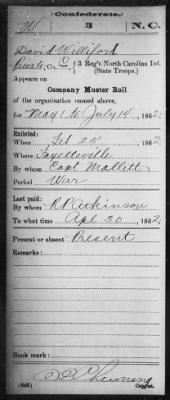 Confederate.
W 3 N. C.
David Williford
Private, Co. C, 3 Reg't North Carolina Inf.
(State Troops.)
Appears on
Company Muster Roll
of the organization named above,
for May 1 to July 14, 1862
Enlisted:
When Feb 25, 1862
Where Fayetteville
By whom Capt Mallett
Period War
Last paid:
By whom R P Atkinson
To what time Apl 30, 1862
Present or absent Present
Remarks:
Book mark:
(642)
Copyist.